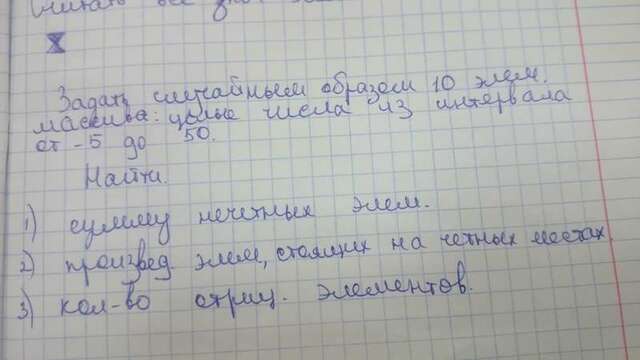 читать все
Задать случайным образом 10 элем.
массива: целые числа из интервала
от -5 до 50.
Найти.
1) сумму нечетных элем.
2) произвед. элем, стоящих на четных местах
3) кол-во отриц. элементов.